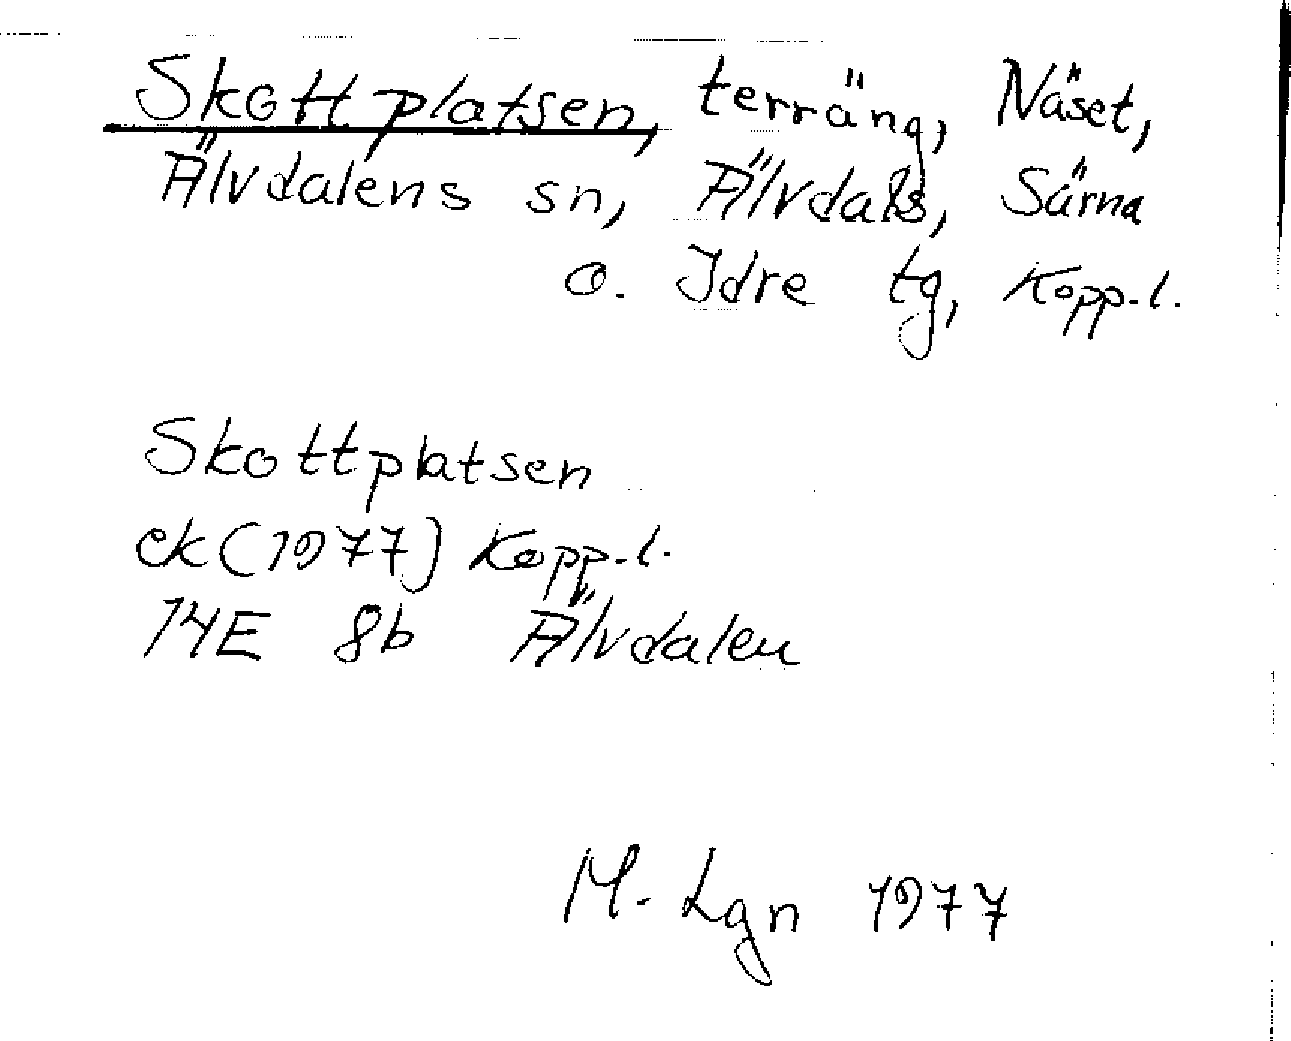 Skottplatsen, terräng, Näset,
Älvdalens sn, Älvdals, Särna
o. Idre tg, Kopp.l.
Skottplatsen
ek (1977) Kopp.l.
14E 8b Älvdalen
M. Lgn 1977